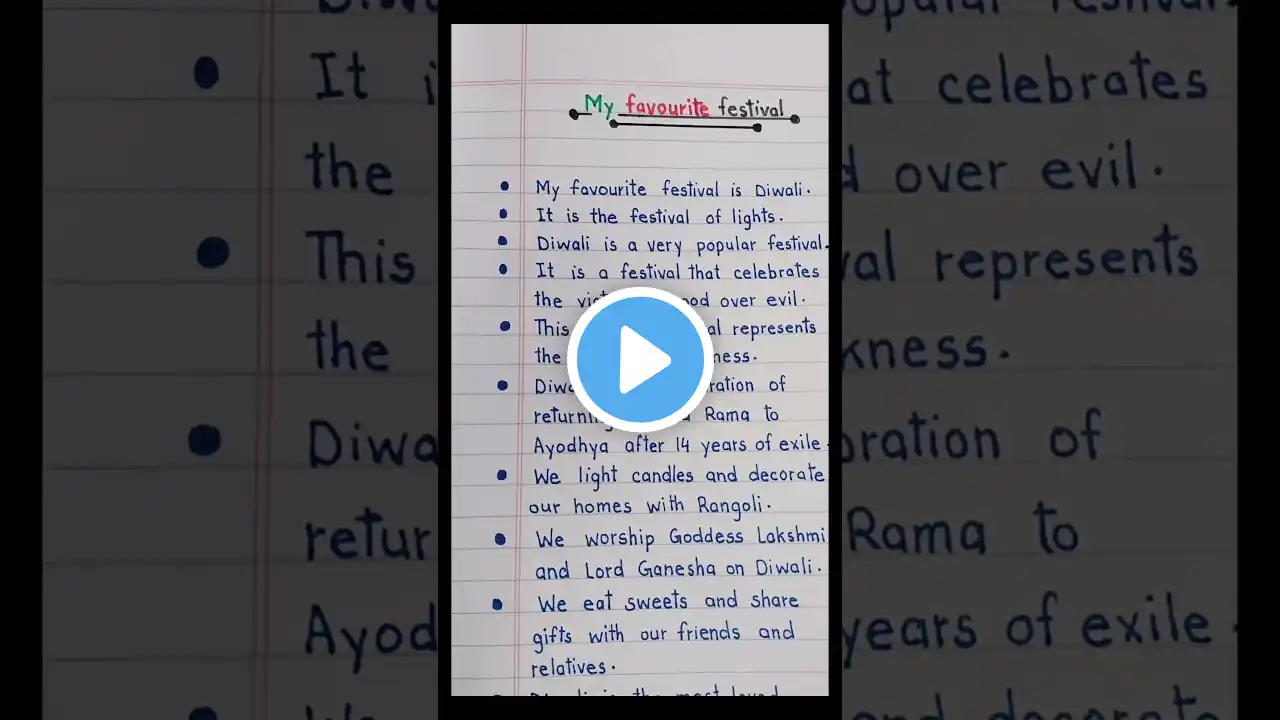 My favourite festival
• My favourite festival is Diwali.
• It is the festival of lights.
• Diwali is a very popular festival.
• It is a festival that celebrates
the over evil.
• This represents
the
• of
Rama to
Ayodhya after 14 years of exile.
• We light candles and decorate
our homes with Rangoli.
• We worship Goddess Lakshmi
and Lord Ganesha on Diwali.
• We eat sweets and share
gifts with our friends and
relatives.